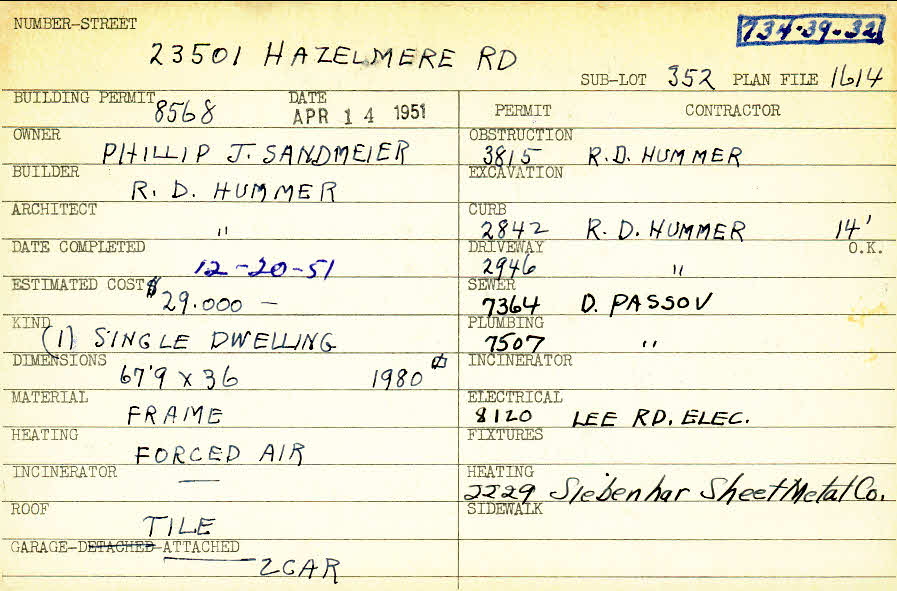 NUMBER-STREET
734-39-32
23501 HAZELMERE RD
SUB-LOT 352 PLAN FILE 1614
BUILDING PERMIT 8568 DATE APR 14 1951
PERMIT CONTRACTOR
OWNER PHILLIP J. SANDMEIER
OBSTRUCTION 3815 R.D. HUMMER
BUILDER R. D. HUMMER
EXCAVATION
ARCHITECT "
CURB 2842 R. D. HUMMER 14'
DATE COMPLETED 12-20-51
DRIVEWAY 2946 " O.K.
ESTIMATED COST $29.000 —
SEWER 7364 D. PASSOV
KIND (1) SINGLE DWELLING
PLUMBING 7507 "
DIMENSIONS 67'9 X 36 1980
INCINERATOR
MATERIAL FRAME
ELECTRICAL 8120 LEE RD. ELEC.
HEATING FORCED AIR
FIXTURES
INCINERATOR —
HEATING 2229 Siebenhar Sheet Metal Co.
ROOF TILE
SIDEWALK
GARAGE-DETACHED-ATTACHED
2 CAR